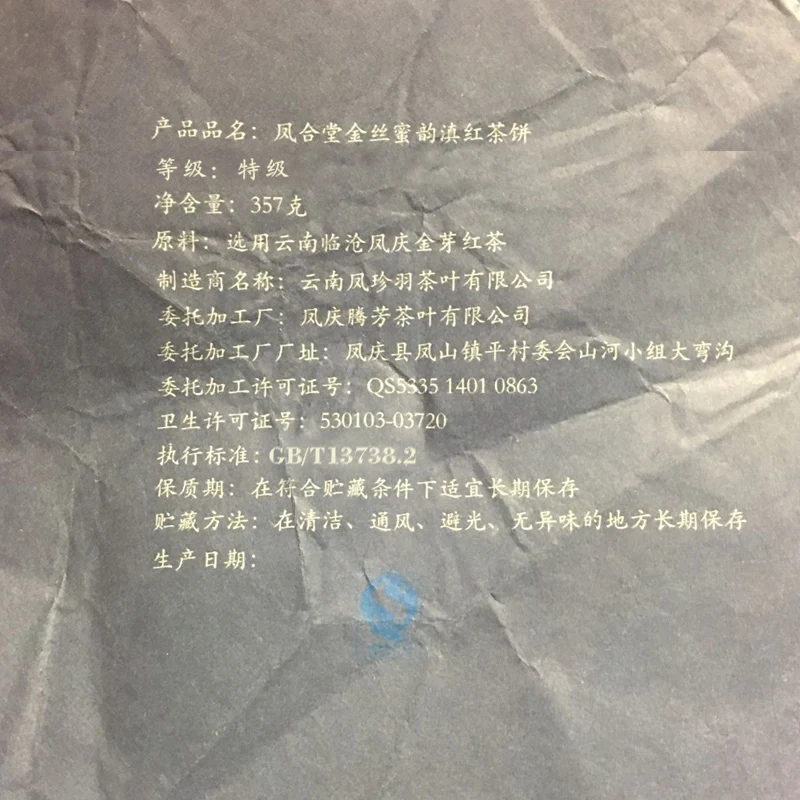 产品品名：凤合堂金丝蜜韵滇红茶饼
等级：特级
净含量：357克
原料：选用云南临沧凤庆金芽红茶
制造商名称：云南凤珍羽茶叶有限公司
委托加工厂：凤庆腾芳茶叶有限公司
委托加工厂厂址：凤庆县凤山镇平村委会山河小组大弯沟
委托加工许可证号：QS5335 1401 0863
卫生许可证号：530103-03720
执行标准：GB/T13738.2
保质期：在符合贮藏条件下适宜长期保存
贮藏方法：在清洁、通风、避光、无异味的地方长期保存
生产日期：